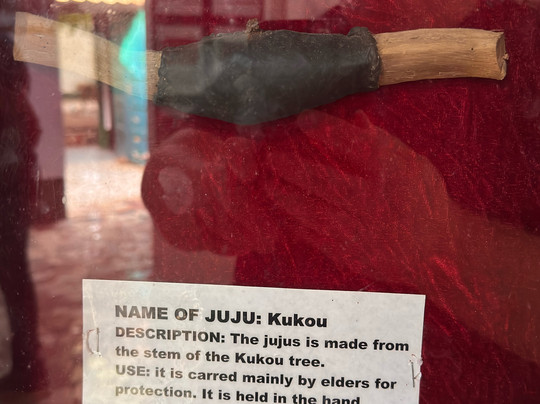 NAME OF JUJU: Kukou
DESCRIPTION: The jujus is made from
the stem of the Kukou tree.
USE: it is carred mainly by elders for
protection. It is held in the hand